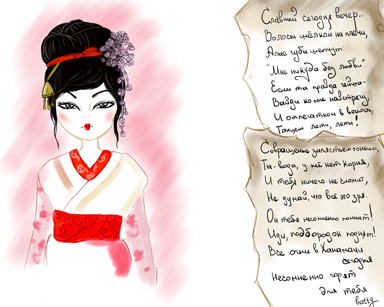 Славный сегодня вечер..
Волосы шёлком на плечи,
Алые губы шепчут
"Мне никуда без любви"
Если ты правда гейша-
Выйди ко мне навстречу,
И отпечатком в вечность,
Танцем лети, лети!
Сокращение запястьем тонким,
Ты-вода, у неё нет корня,
И тебя ничего не сломит,
Не думай, что всё это зря
Он тебя несомненно помнит!
Иди, подбородок поднят!
Все огни в Ханамати
сегодня
Несомненно горят
для тебя